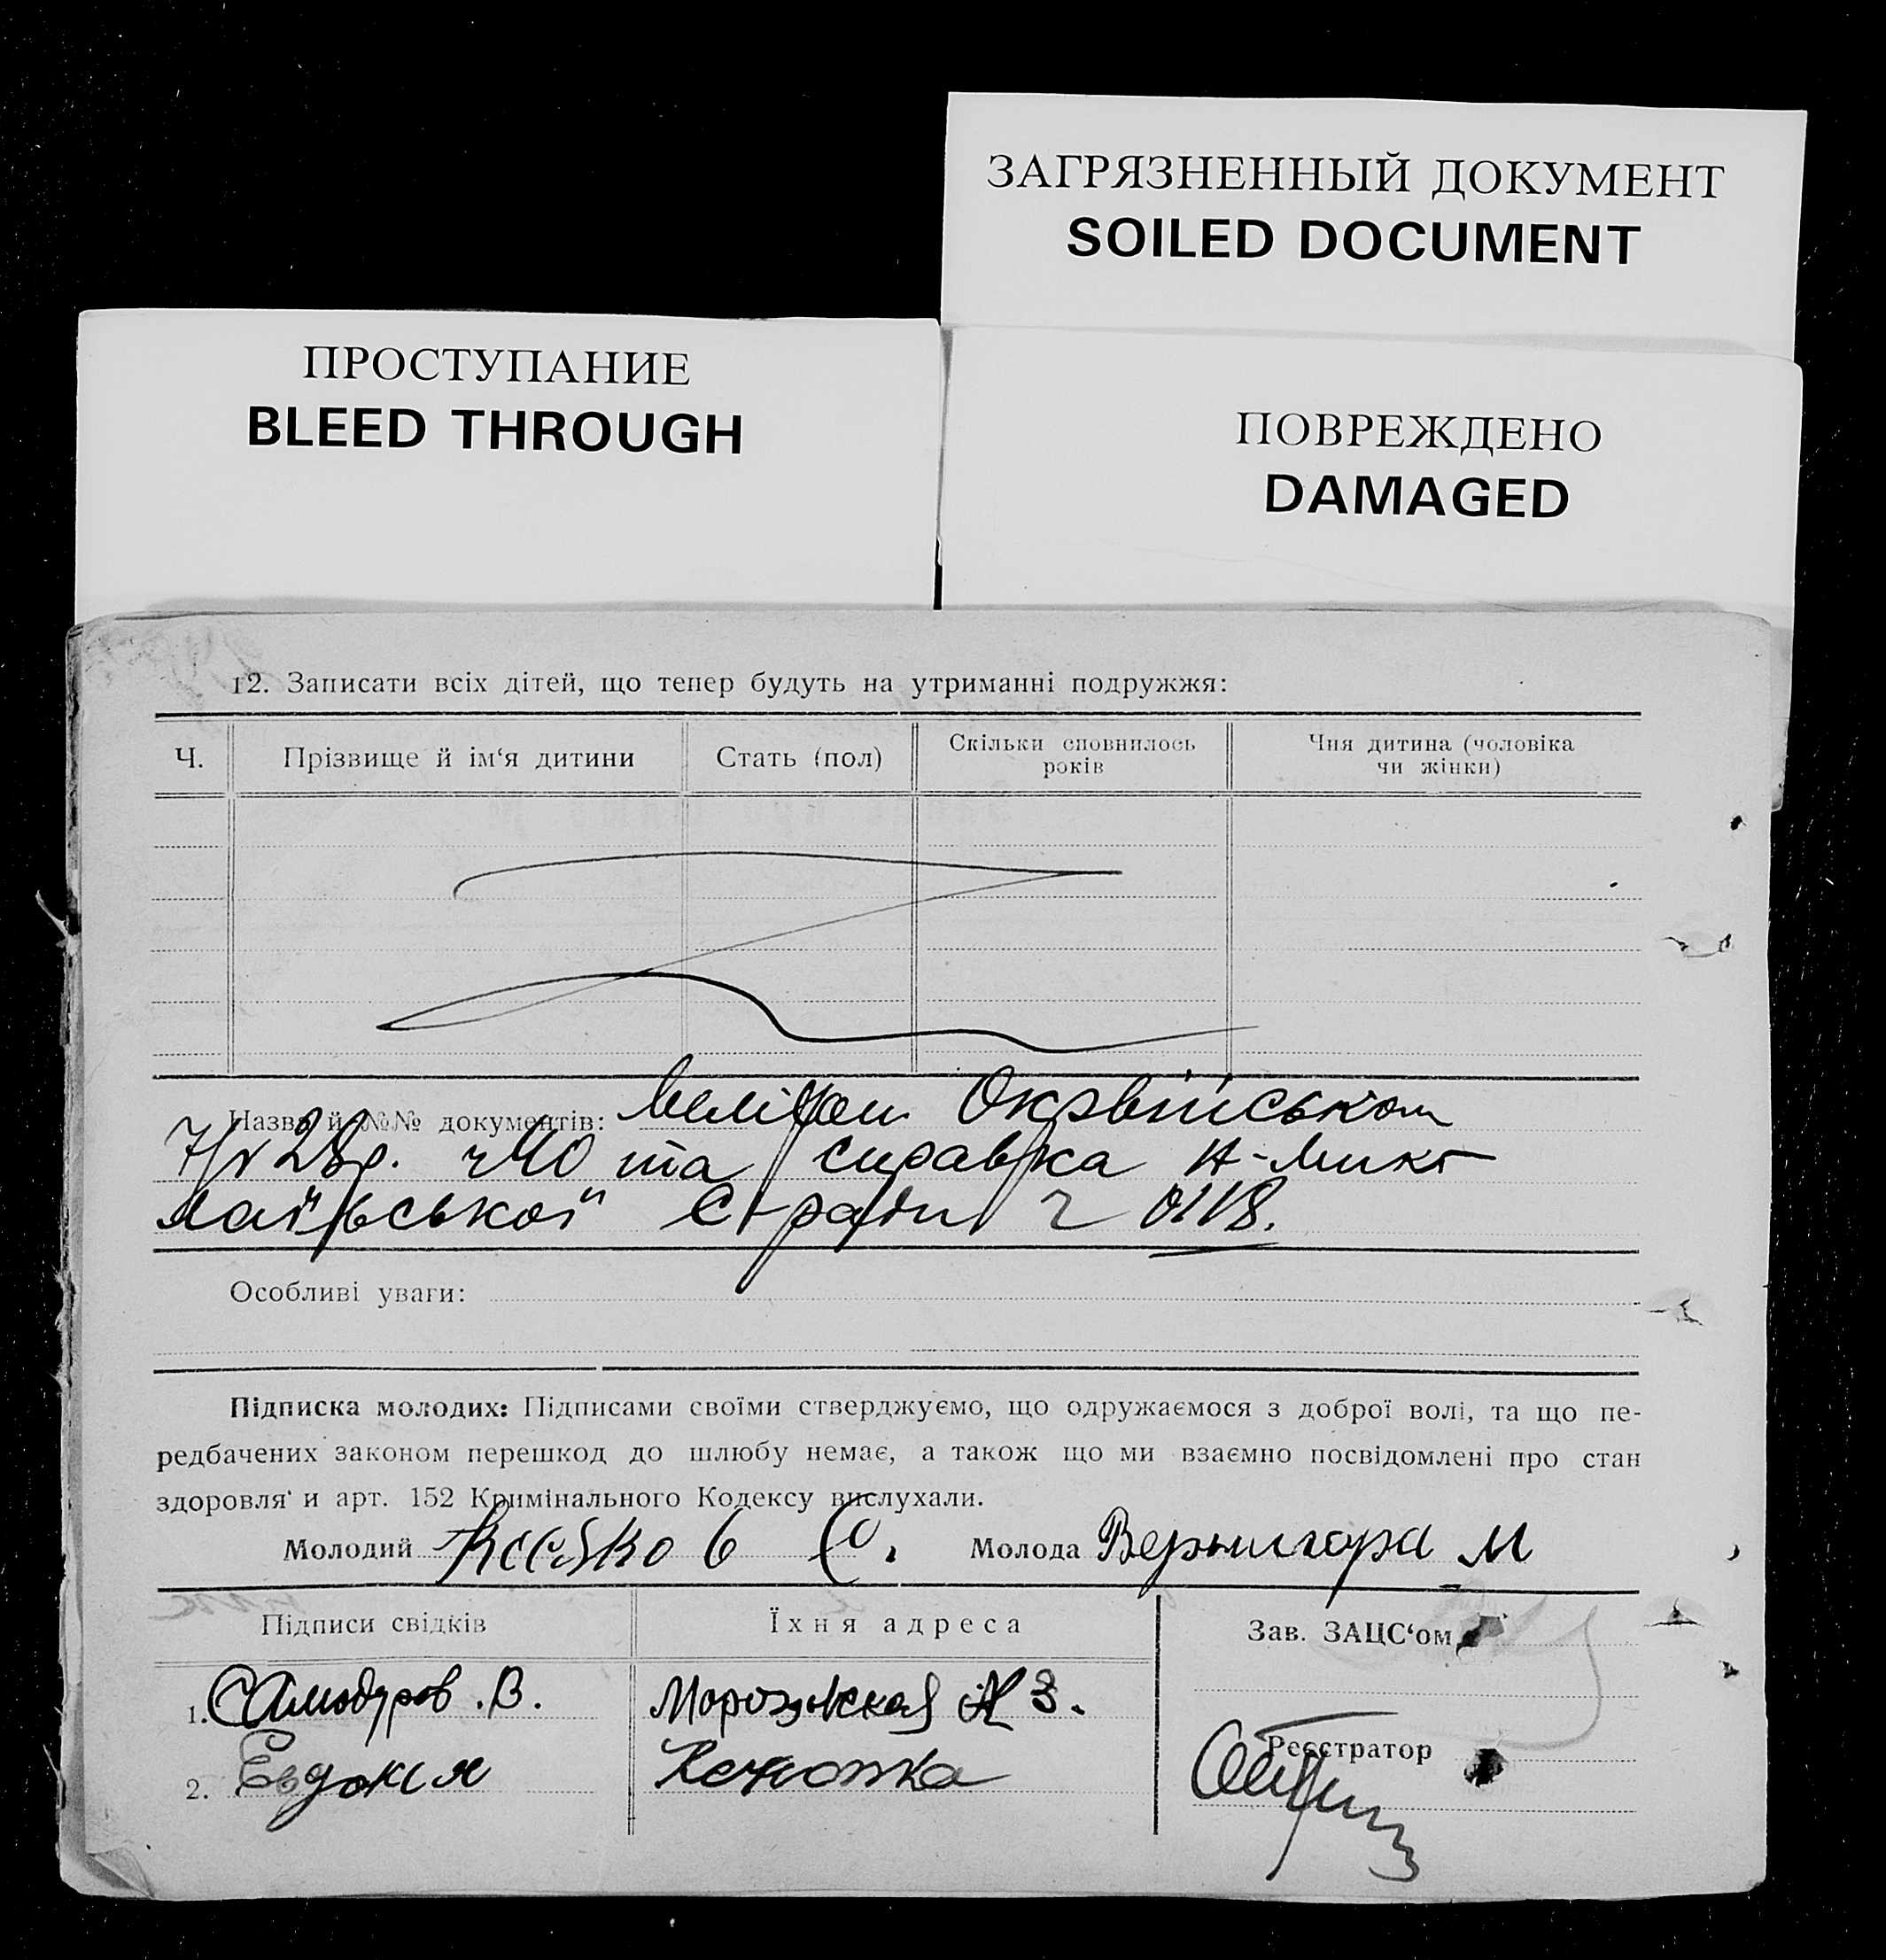 ЗАГРЯЗНЕННЫЙ ДОКУМЕНТ
SOILED DOCUMENT
ПРОСТУПАНИЕ
BLEED THROUGH
ПОВРЕЖДЕНО
DAMAGED
12. Записати всіх дітей, що тепер будуть на утриманні подружжя:
Ч. Прізвище й ім‘я дитини Стать (пол) Скільки сповнилось років Чия дитина (чоловіка чи жінки)
Назва й №№ документів:
та справка Н-Мико
лаївської
Особливі уваги:
Підписка молодих: Підписами своїми стверджуємо, що одружаємося з доброї волі, та що пе-
редбачених законом перешкод до шлюбу немає, а також що ми взаємно посвідомлені про стан
здоровля и арт. 152 Кримінального Кодексу вислухали.
Молодий Молода Вернигора М
Підписи свідків Їхня адреса Зав. ЗАЦС‘ом
1. Самодуров. В. 3.
Реєстратор
2. Евдокия